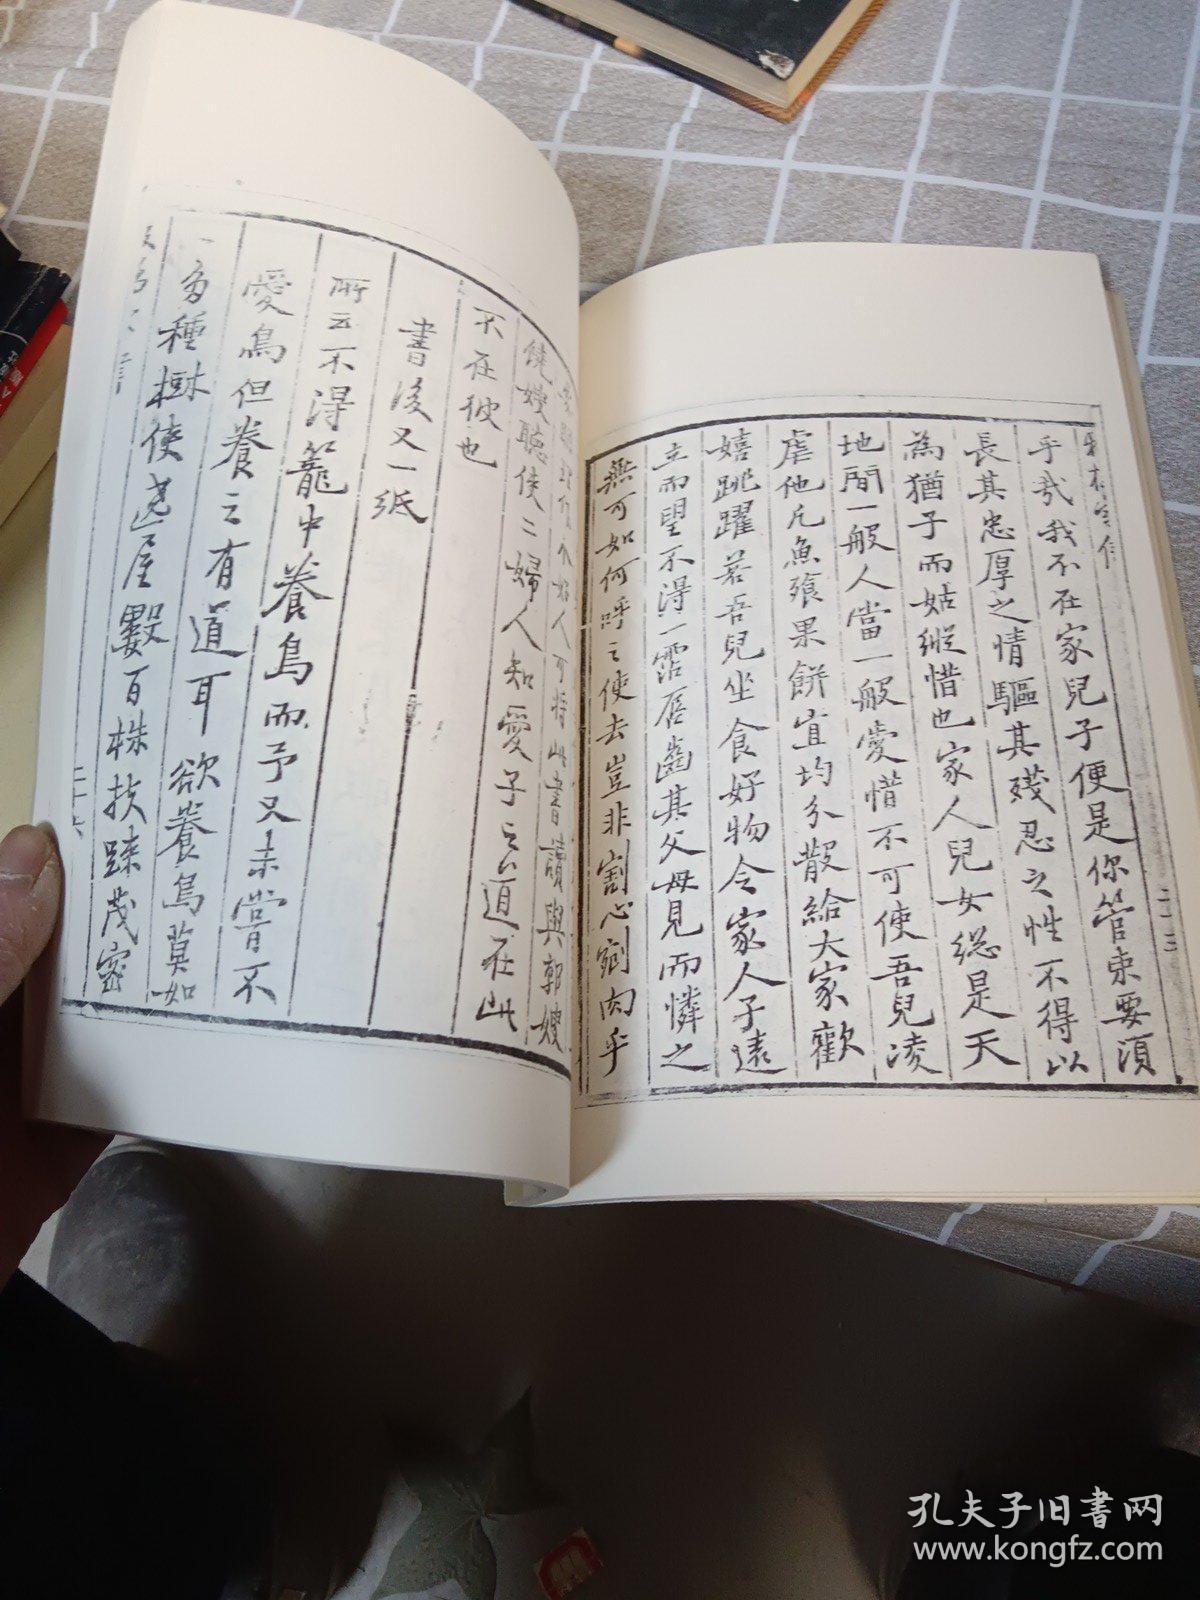 乎哉我不在家兒子便是你管束要須
長其忠厚之情驅其殘忍之性不得以
為猶子而姑縱惜也家人兒女総是天
地間一般人當一般愛惜不可使吾兒凌
虐他凡魚飱果餅宜均分散給大家歡
嬉跳躍若吾兒坐食好物令家人子遠
立而望不得一霑唇齒其父母見而憐之
無可如何呼之使去豈非割心剜肉乎
人可将此書讀與郭嫂
饒嫂聴使二婦人知愛子之道在此
不在彼也
書後又一纸
所云不得籠中養鳥而予又未嘗不
愛鳥但養之有道耳欲養鳥莫如
多種樹使遶屋數百株扶踈茂密
二十三
孔夫子旧书网
www.kongfz.com